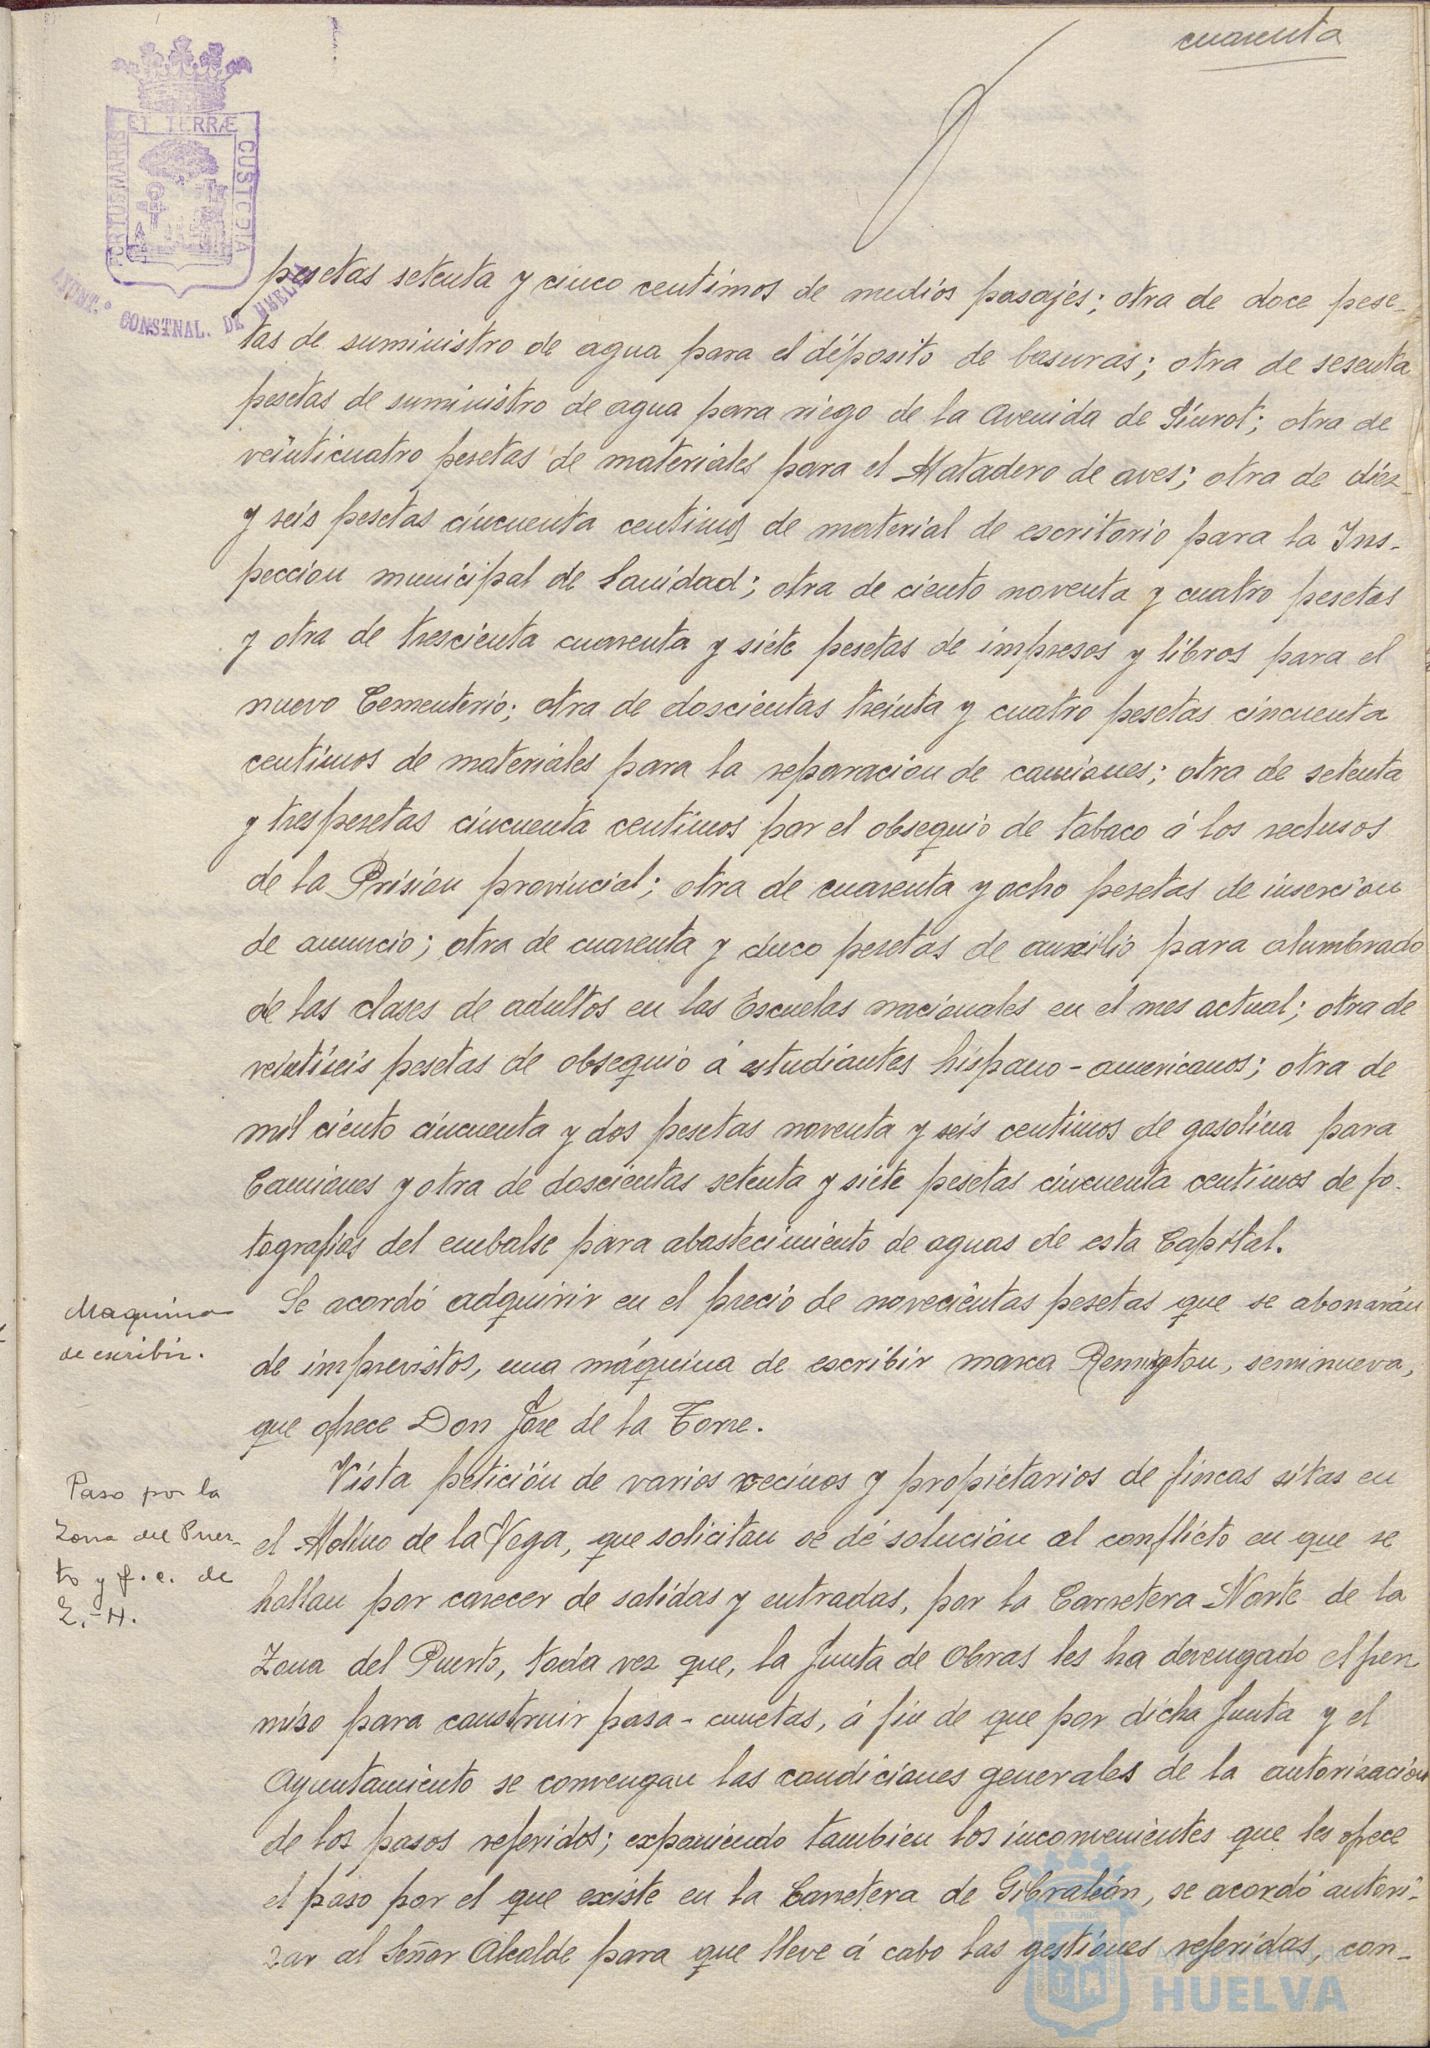 cuarenta
PORTUS MARIS ET TERRÆ CUSTODIA
AYUNT.º CONSTNAL. DE HUELVA
pesetas setenta y cinco centimos de medios pasajes; otra de doce pese-
tas de suministro de agua para el déposito de basuras; otra de sesenta
pesetas de suministro de agua para riego de la Avenida de Siurot; otra de
veinticuatro pesetas de materiales para el Matadero de aves; otra de diez
y seis pesetas cincuenta centimos de material de escritorio para la Ins-
peccion municipal de Sanidad; otra de ciento noventa y cuatro pesetas
y otra de trescienta cuarenta y siete pesetas de impresos y libros para el
nuevo Cementerio; otra de doscientas treinta y cuatro pesetas cincuenta
centimos de materiales para la reparacion de camiones; otra de setenta
y tres pesetas cincuenta centimos por el obsequio de tabaco á los reclusos
de la Prision provincial; otra de cuarenta y ocho pesetas de insercion
de anuncio; otra de cuarenta y cinco pesetas de auxilio para alumbrado
de las clases de adultos en las Escuelas nacionales en el mes actual; otra de
veintiseis pesetas de obsequio á estudiantes hispano-americanos; otra de
mil ciento cincuenta y dos pesetas noventa y seis centimos de gasolina para
Camiones y otra de doscientas setenta y siete pesetas cincuenta centimos de fo-
tografias del embalse para abastecimiento de aguas de esta Capital.
Maquina
de escribir.
Se acordó adquirir en el precio de novecientas pesetas que se abonarán
de imprevistos, una máquina de escribir marca Remigton, seminueva,
que ofrece Don Jose de la Torre.
Paso por la
Zona del Puer-
to y f.c. de
Z.-H.
Vista petición de varios vecinos y propietarios de fincas sitas en
el Molino de la Vega, que solicitan se dé solución al conflicto en que se
hallan por carecer de salidas y entradas, por la Carretera Norte de la
Zona del Puerto, toda vez que, la Junta de Obras les ha devengado el per
miso para construir pasa-cunetas, á fin de que por dicha Junta y el
Ayuntamiento se convengan las condiciones generales de la autorización
de los pasos referidos; exponiendo tambien los inconvenientes que les ofrece
el paso por el que existe en la Carretera de Gibraleón, se acordó autori-
zar al Señor Alcalde para que lleve á cabo las gestiones referidas, con-
Ayuntamiento de
HUELVA